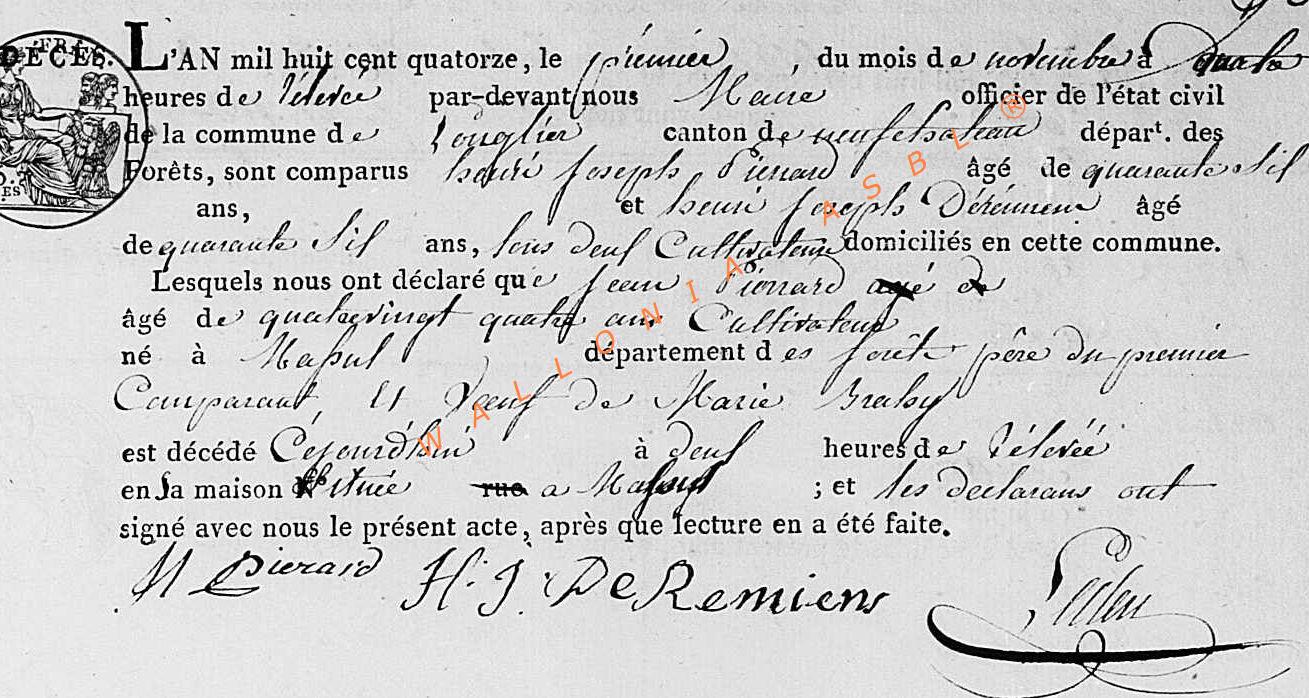 DÉCÈS.
L'AN mil huit cent quatorze, le premier, du mois de novembre à quatre
heures de rélevée par-devant nous Maire officier de l'état civil
de la commune de Longlier canton de neufchateau départ. des
Forêts, sont comparus henri joseph Pierrard âgé de quarante Six
ans, et henri joseph Deremiens âgé
de quarante Six ans, tous deux Cultivateurs domiciliés en cette commune.
Lesquels nous ont déclaré que jean Pierrard agé de
âgé de quatrevingt quatre ans Cultivateur
né à Massul département des forêts père du premier
Comparant, et Vœuf de Marie
est décédé Cejourdhui à deux heures de rélévéé
en sa maison située rue a Massul ; et les declarans ont
signé avec nous le présent acte, après que lecture en a été faite.
H Pierard H. J. De Remiens
WALLONIA ASBL ®